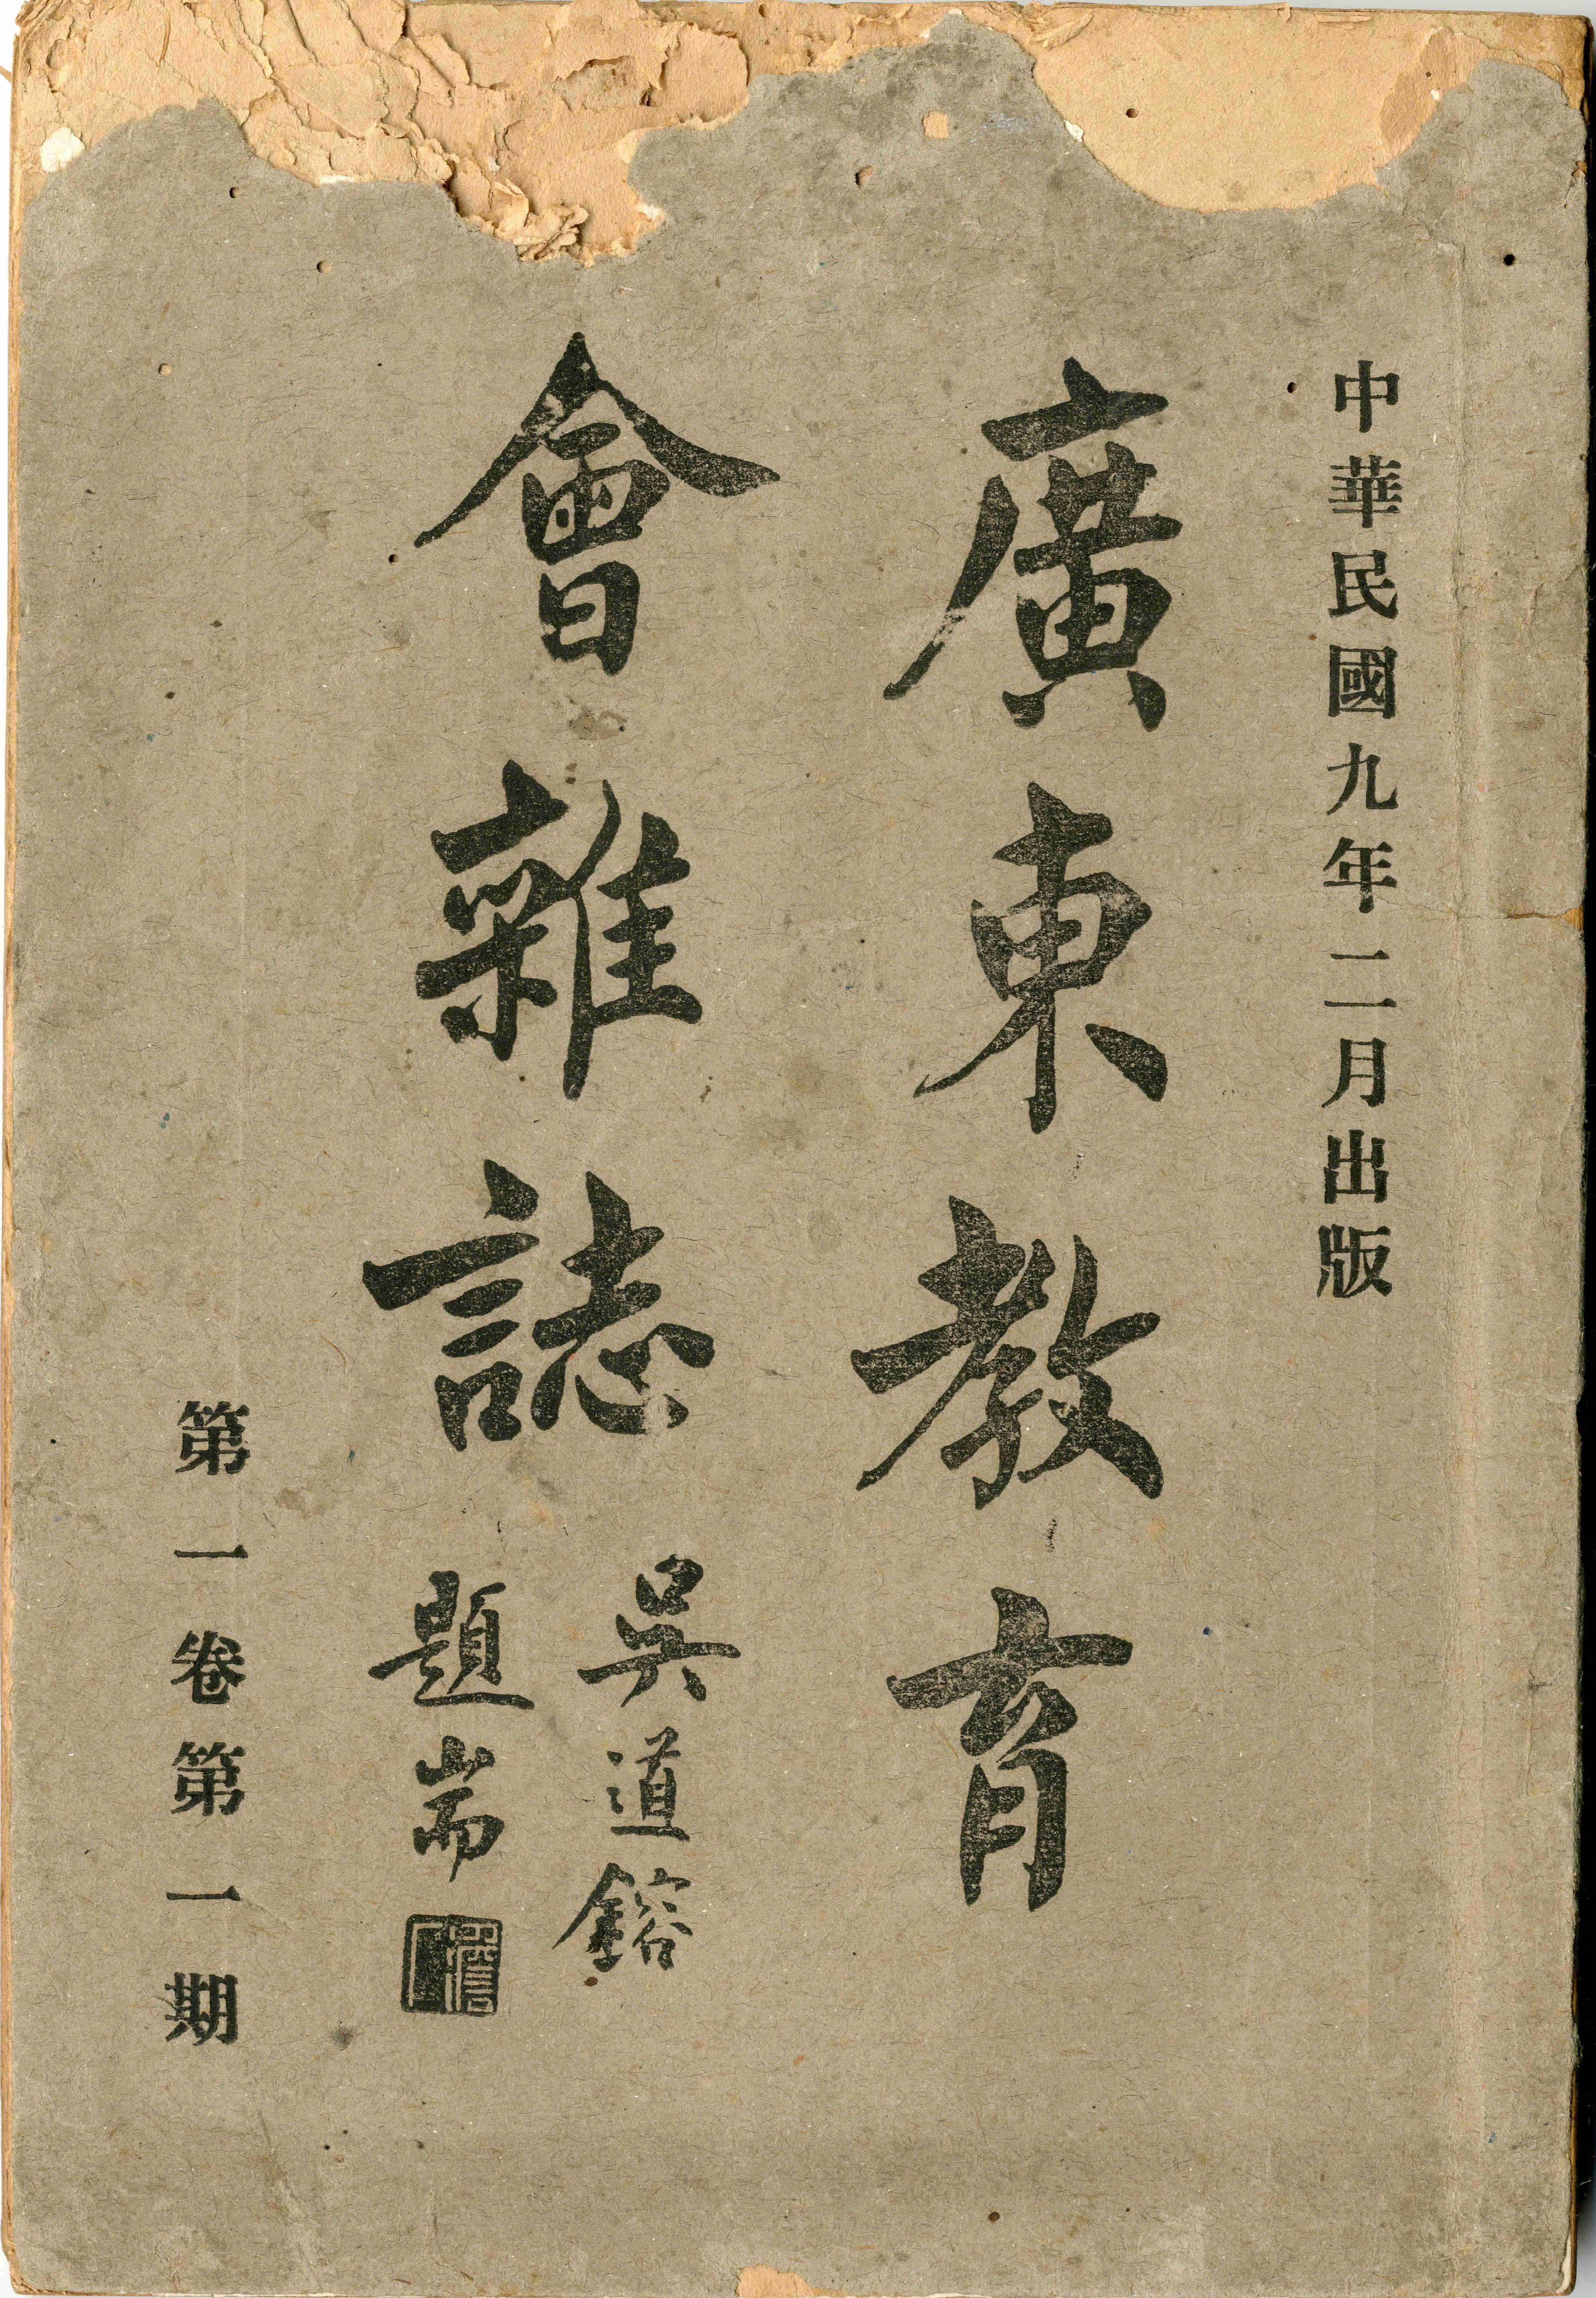 中華民國九年二月出版
廣東教育
會雜誌
吳道鎔
題耑
第一卷第一期